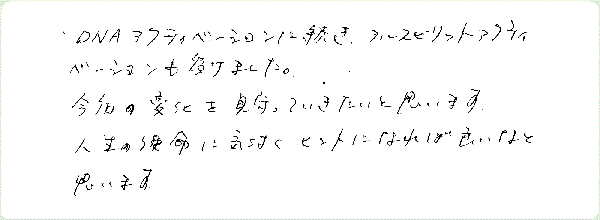 DNAアクティベーションに続き、フルスピリットアクティ
ベーションも受けました。
今後の変化を見守っていきたいと思います。
人生の使命に気づくヒントになれば良いなと
思います。